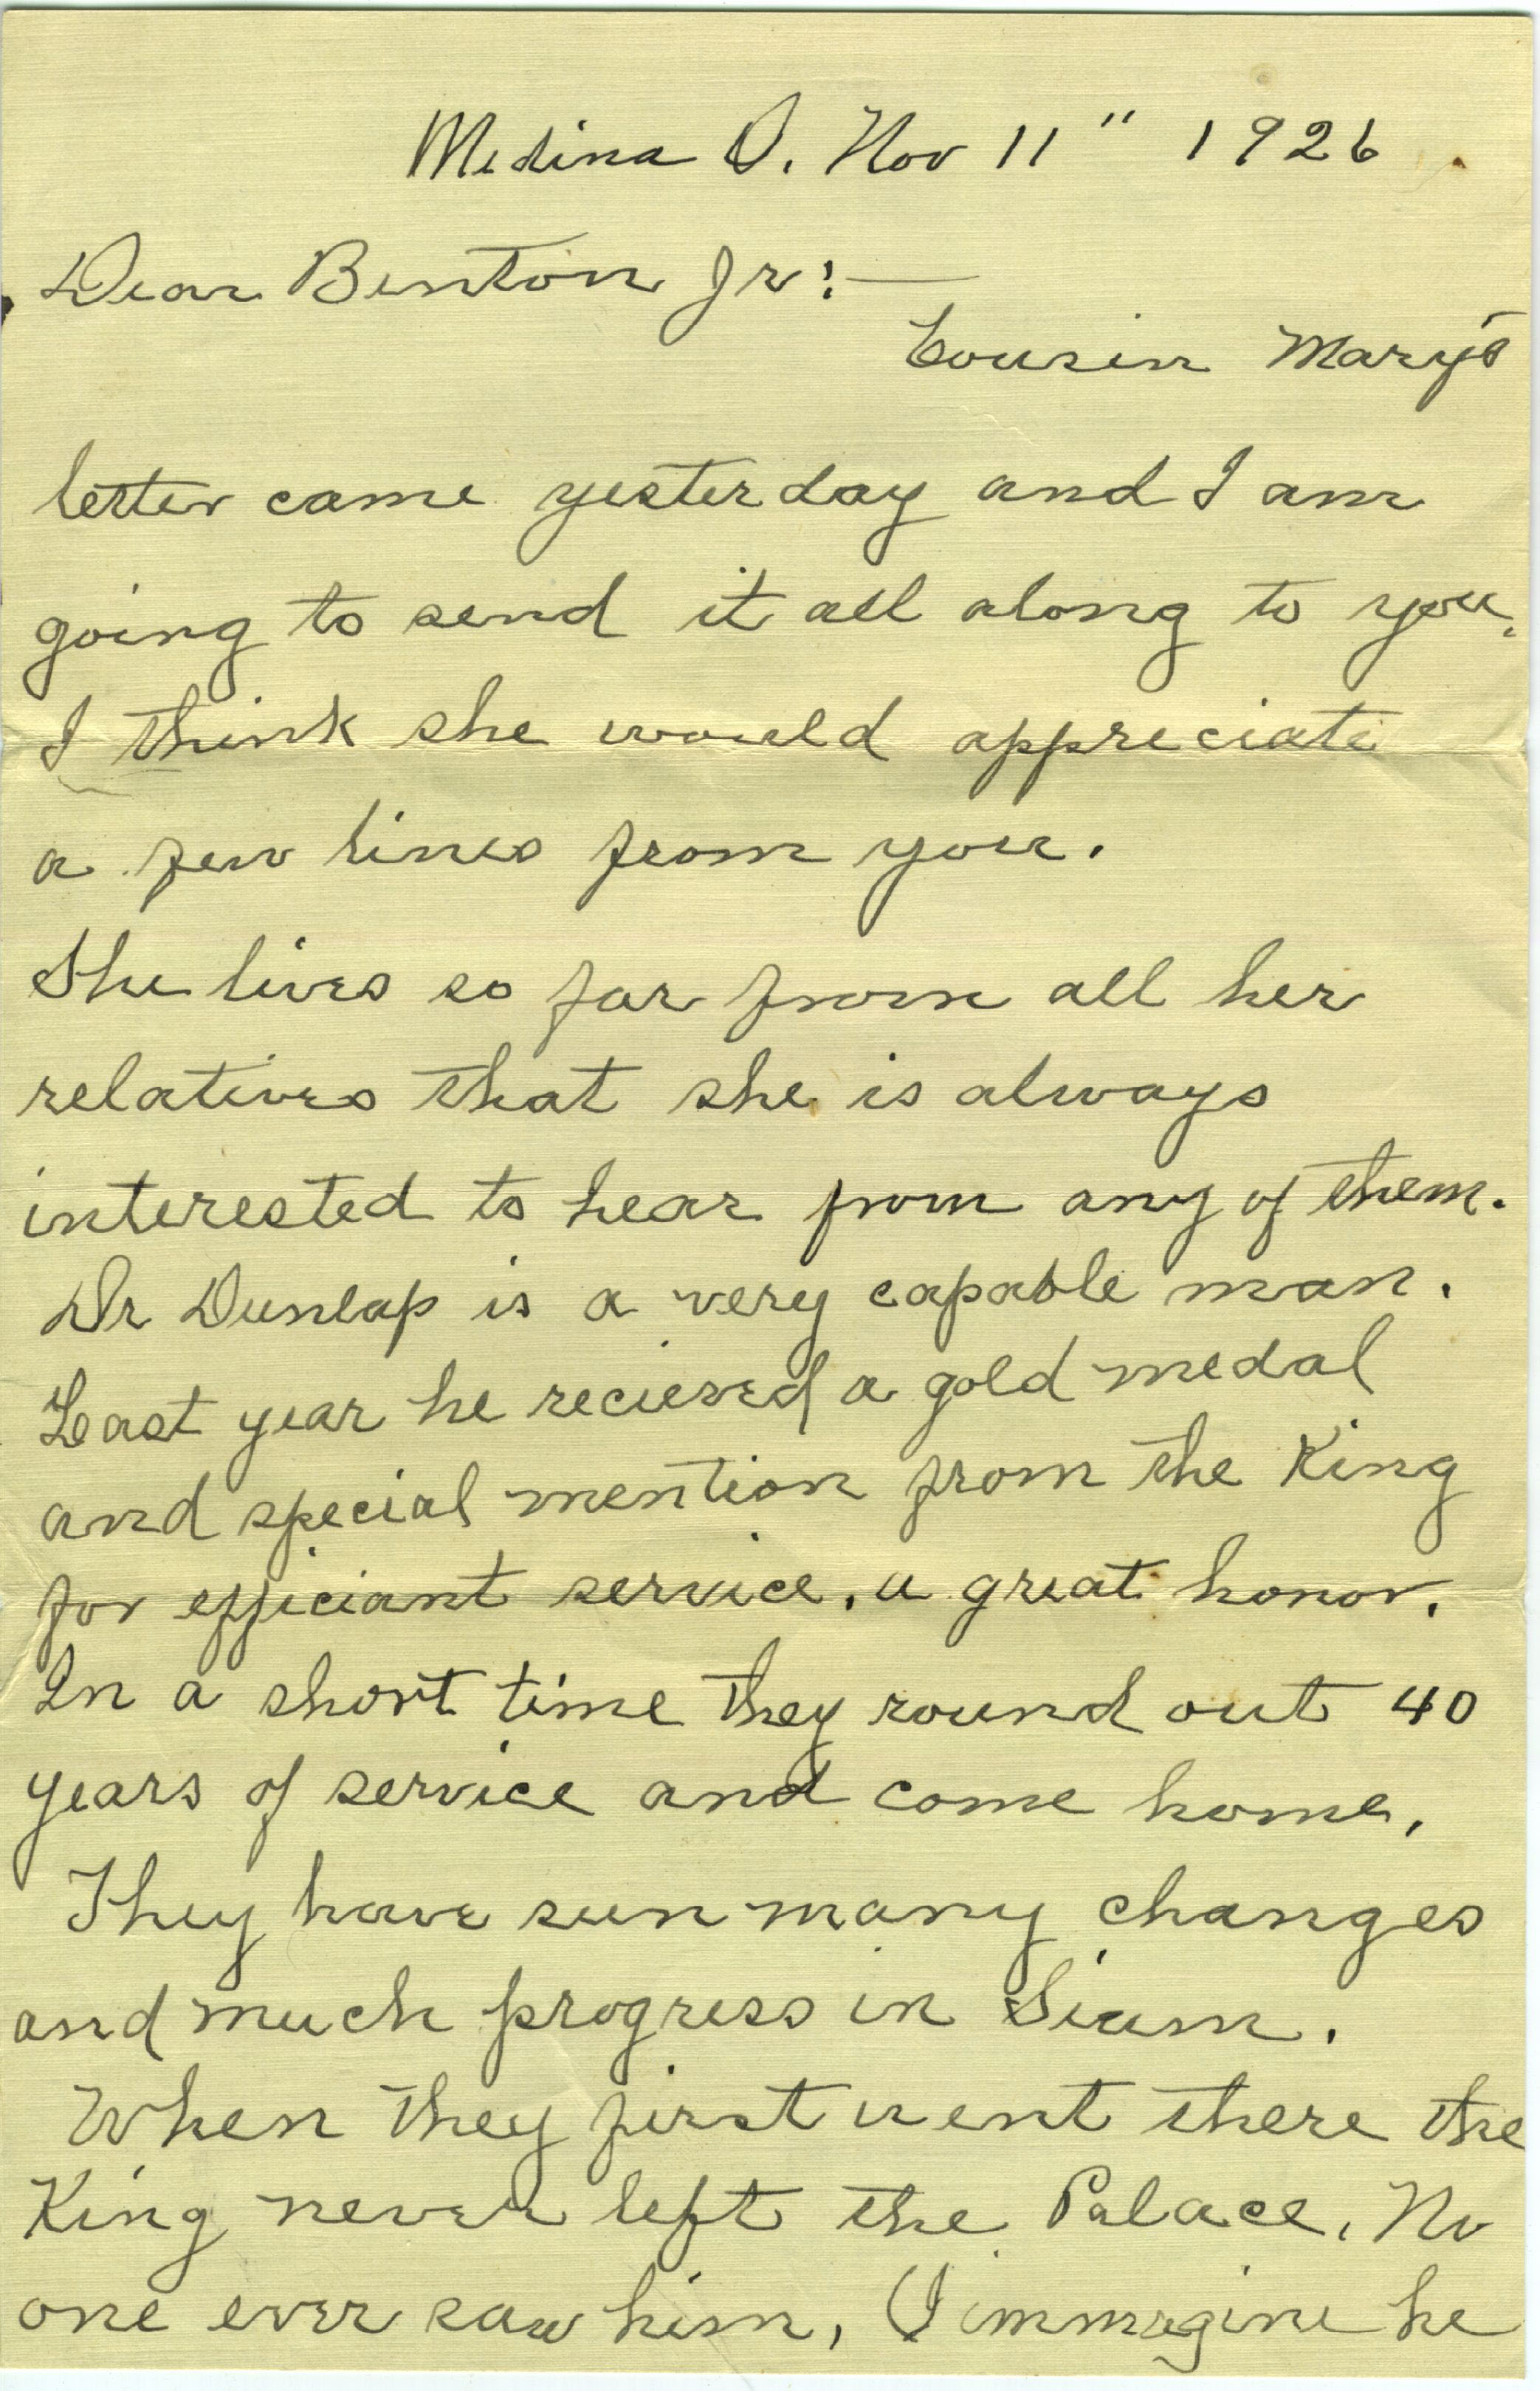 Medina O. Nov 11" 1926
Dear Benton Jr:—
Cousin Mary's
letter came yesterday and I am
going to send it all along to you.
I think she would appreciate
a few lines from you.
She lives so far from all her
relatives that she is always
interested to hear from any of them.
Dr Dunlap is a very capable man.
Last year he recieved a gold medal
and special mention from the King
for efficiant service. a great honor.
In a short time they round out 40
years of service and come home.
They have seen many changes
and much progress in Siam.
When they first went there the
King never left the Palace. No
one ever saw him. (I immagine he